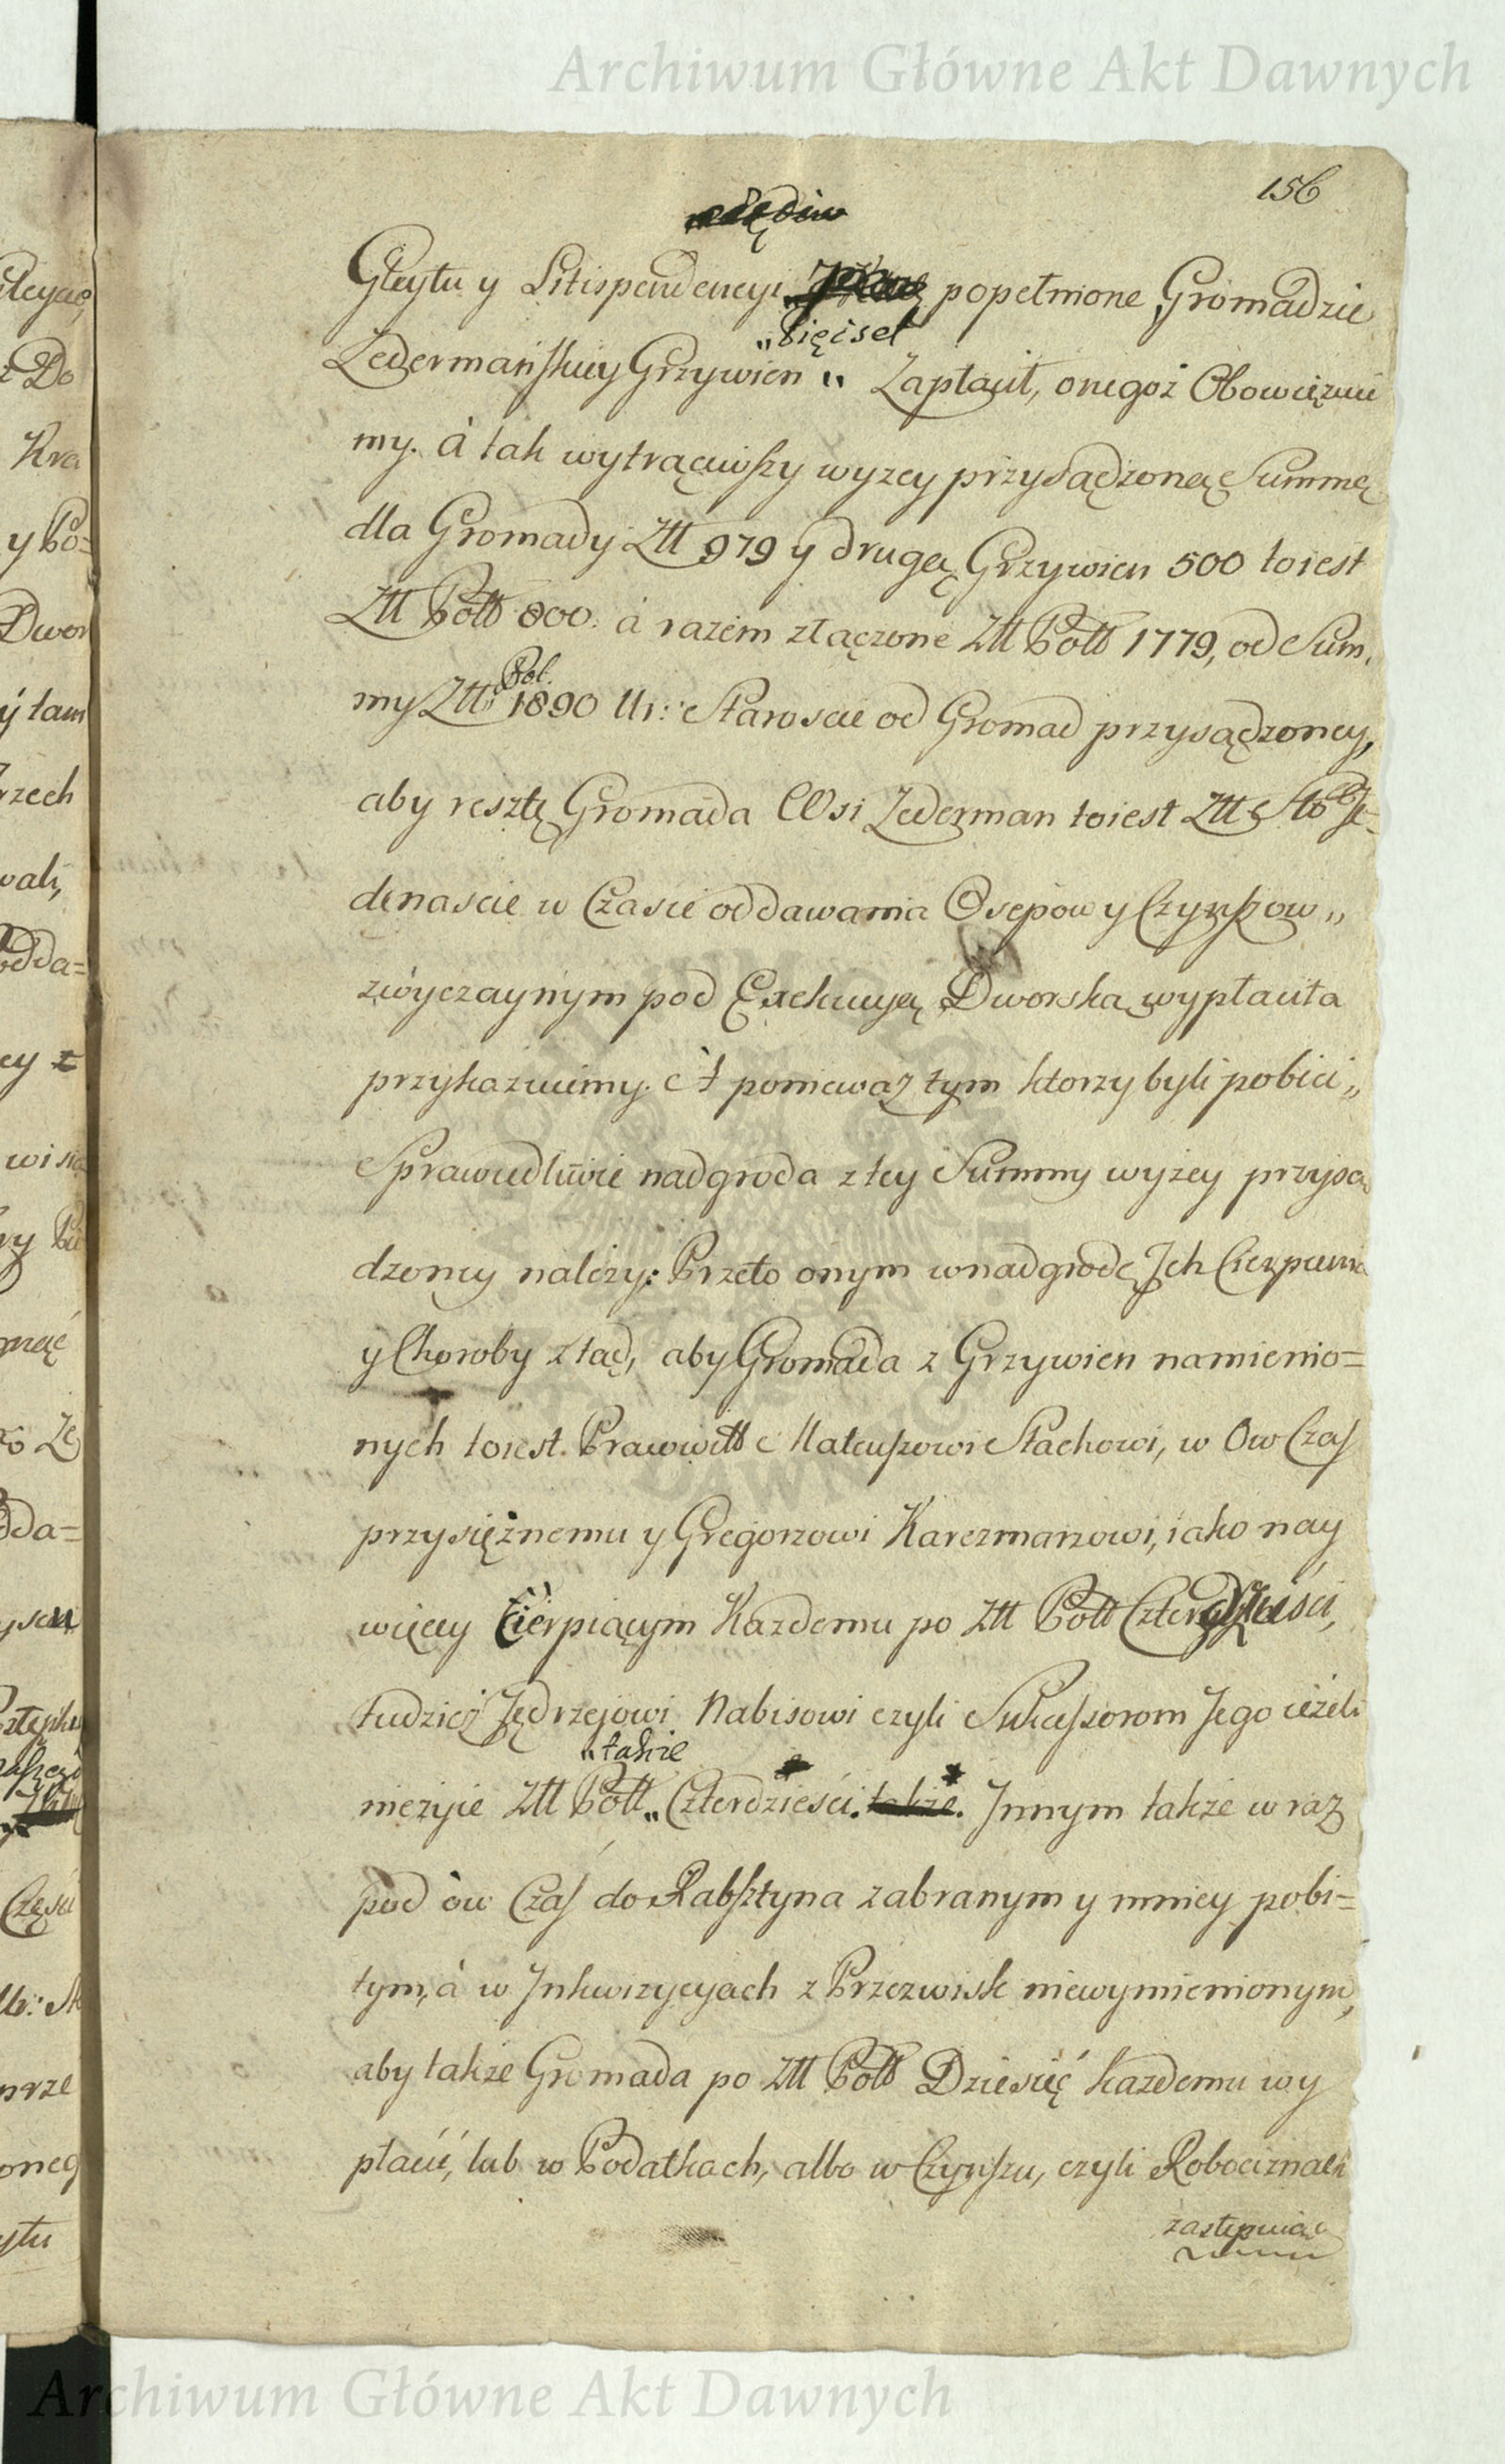 Archiwum Główne Akt Dawnych
156
Gleytu y Litispendencyi popełnione Gromadzie
"Pięćset
Zedermańskiey Grzywien " Zapłacił, onegoż Obowięzuie
my. à tak wytrąciwszy wyzey przysądzoną Summę
dla Gromady Ztt 979 y drugą Grzywien 500 toiest
Ztt Poltt 800. á razem złączone Ztt Poltt 1779, od Sum,
Pol.
my Ztt: 1890 Ur: Staroscie od Gromad przysądzoney,
aby resztę Gromada Wsi Zederman toiest Ztt Sto Je-
denascie w Czasie oddawania Osepow y Czynszow „
zwyczaynym pod Exekucyą Dworską wypłaciła
przykazuiemy. A ponieważ tym ktorzy byli pobici „
Sprawiedliwie nadgroda z tey Summy wyzey przysą
dzoney należy: Przeto onym wnadgrodę Jch Cierpienia
y Choroby ztąd, aby Gromada z Grzywien namienio=
nych toiest. Prawowitt Mateuszowi Stachowi, w Ow Czas
przysiężnemu y Gregorzowi Karczmarzowi, iako nay
więcey Cierpiącym Kazdemu po Ztt Poltt Czterdzieści,
tudzież Jędrzejowi Nabisowi czyli Sukcessorom Jego ieżeli
"takze
nieżyie Ztt Poltt „ Czterdzieści. także. Innym także wraz
pod ów Czas do Rabsztyna zabranym y mniey pobi=
tym, à w Jnkwizycyach z Przezwisk niewymienionym,
aby także Gromada po Ztt Poltt Dziesięć kazdemu wy
płacić, lub w Podatkach, albo w Czynszu, czyli Robociznach
zastępuiąc
Archiwum Główne Akt Dawnych